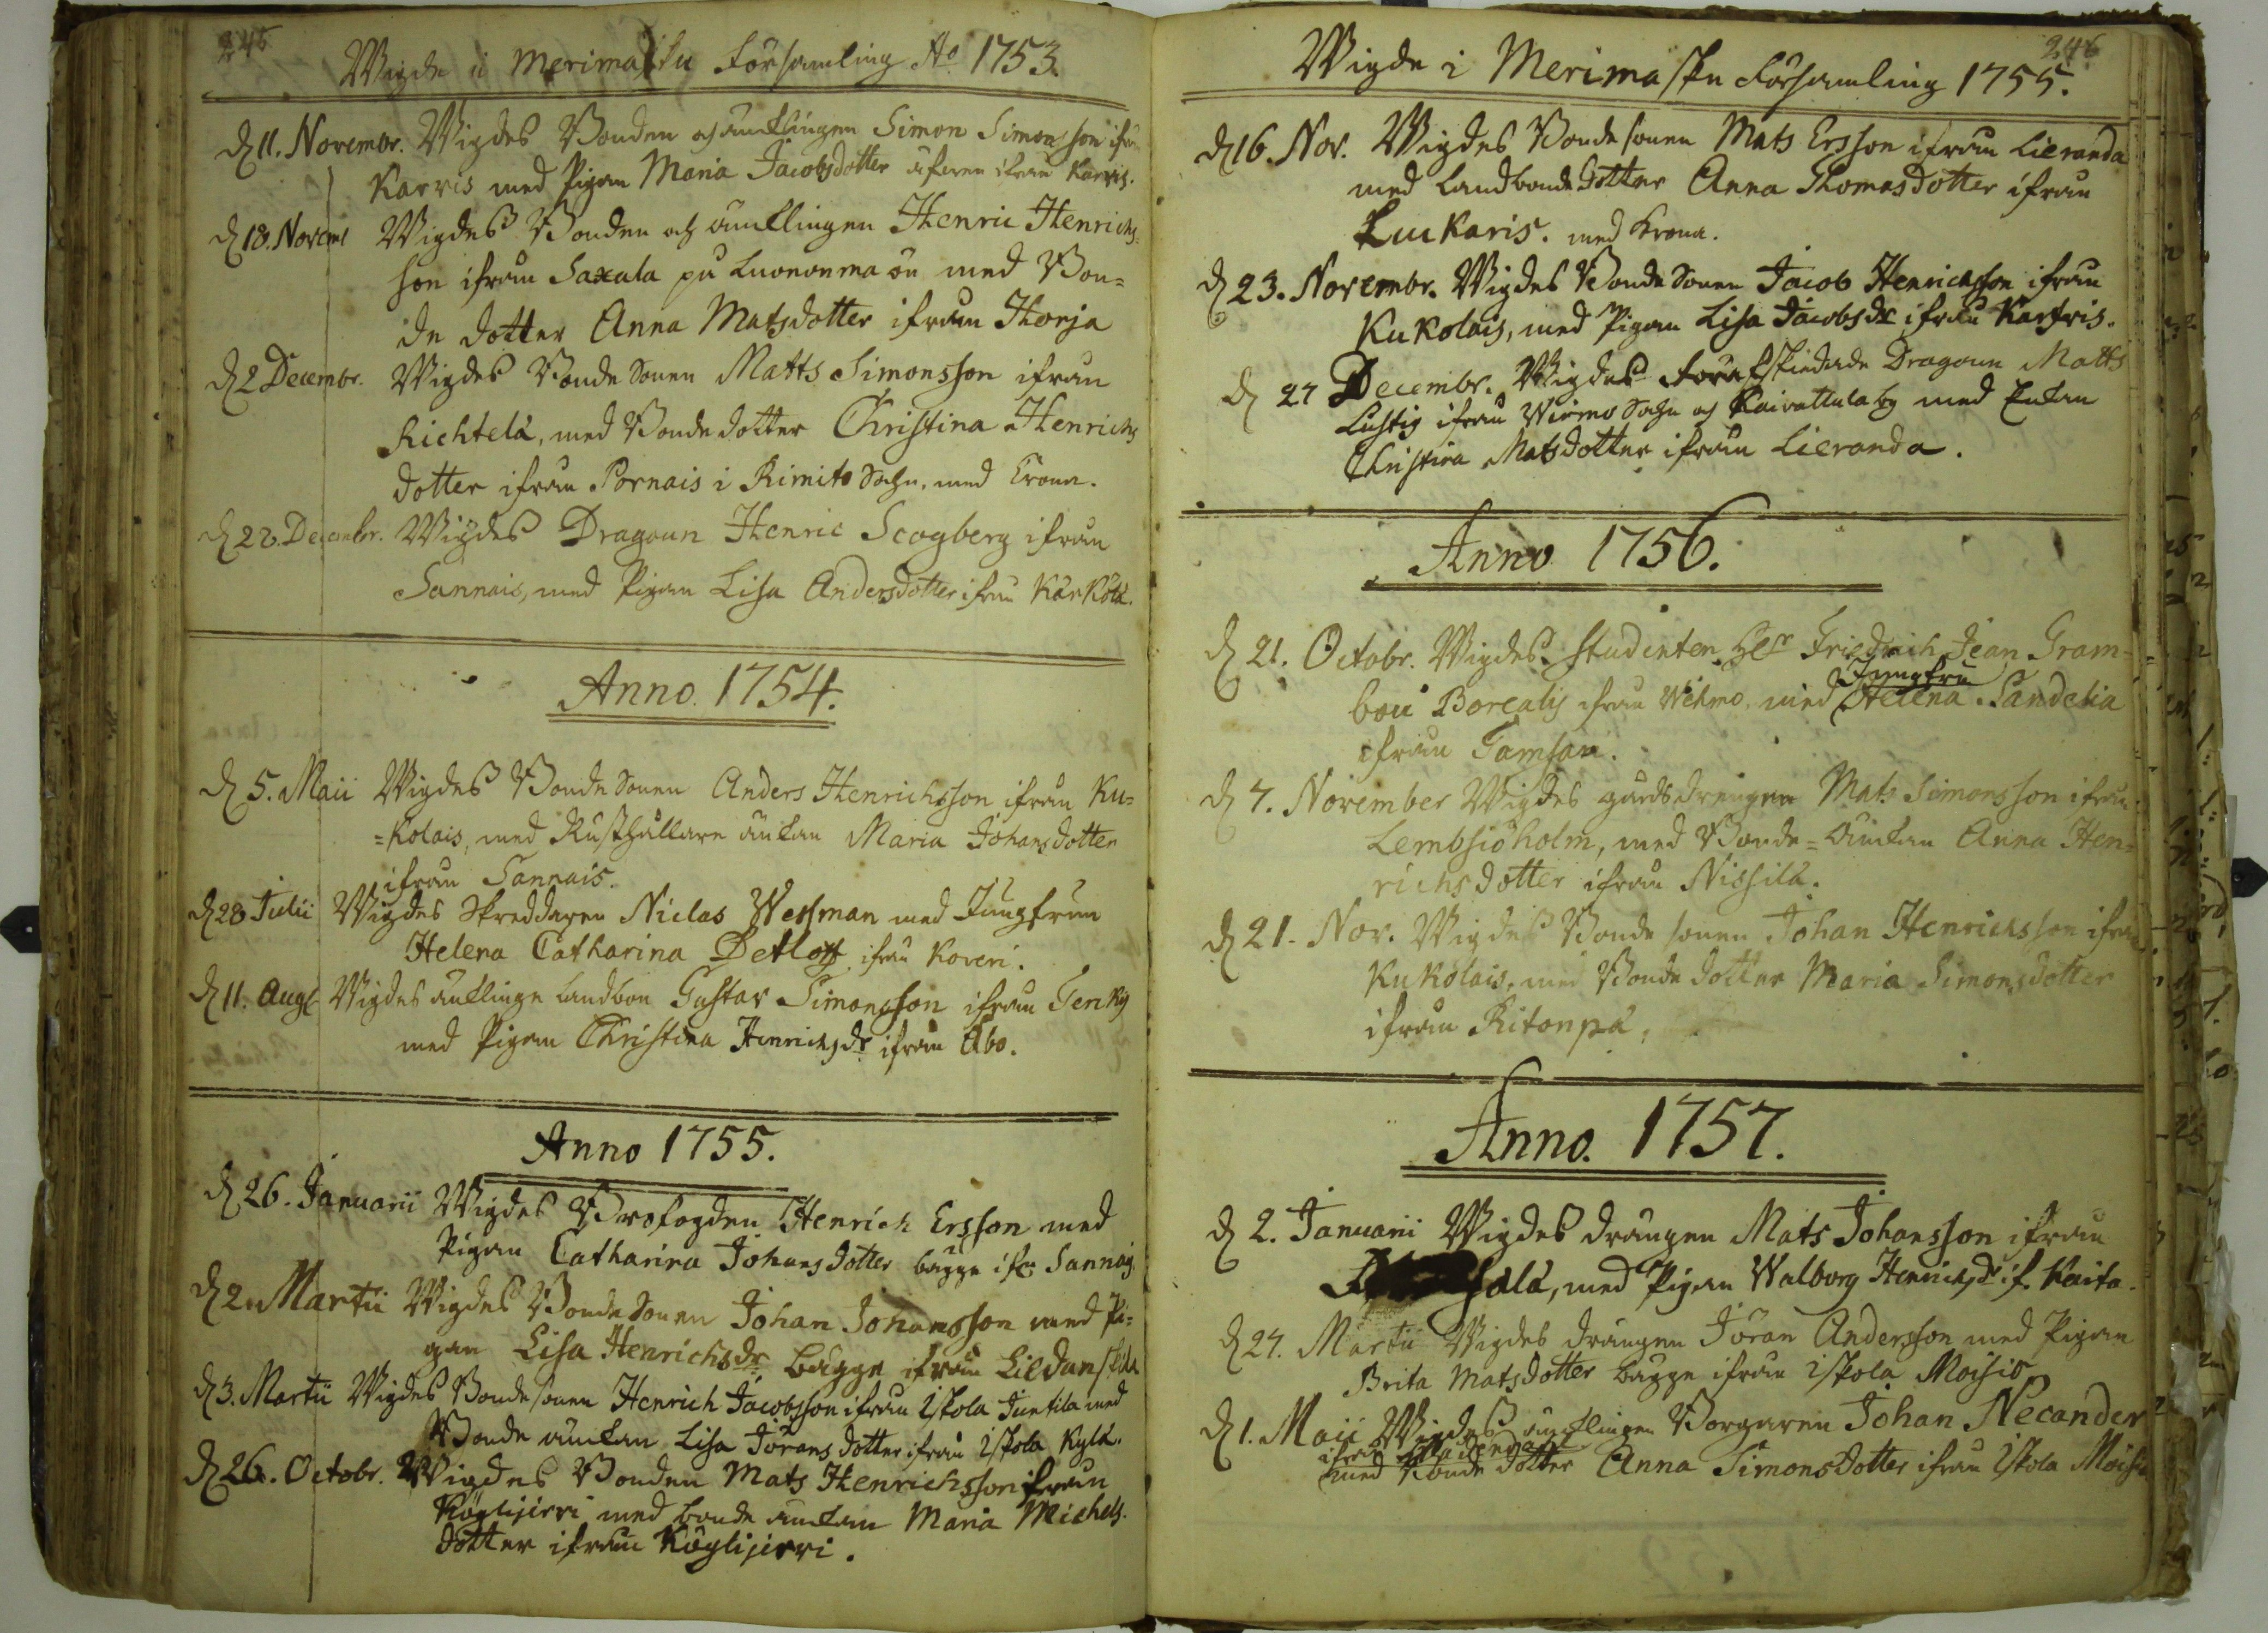 245
Wigde i Merimasku Församling Ao 1753.
d. 11. Novembr. Wigdes Bonden och änklingen Simon Simonsson ifrån
Karvis med Pigan Maria Jacobsdotter ifrån Karvis.
d. 18. Novembr Wigdes Bonden och änklingen Henric Henrichs=
son ifrån Saxala på Luononma ön med Bon=
de dotter Anna Matsdotter ifrån Thorja
d. 2 Decembr. Wigdes Bonde Sonen Matts Simonsson ifrån
Richtelä, med Bonde dotter Christina Henrichs
dotter ifrån Pornais i Rimito Sochn, med Crona.
d. 28. Decembr. Wigdes Dragoun Henric Scogberg ifrån
Sannais, med Pigan Lisa Andersdotter ifrån Kärkölä.
Anno. 1754.
d. 5. Maii Wigdes Bonde Sonen Anders Henrichsson ifrån Ku=
=kolais, med Rusthållare änkan Maria Johansdotter
ifrån Sannais.
d. 28 Julii Wigdes Skreddaren Niclas Wessman med Jungfrun
Helena Catharina Detloff ifrån Koveri.
d. 11. Augt Wigdes änklinge Landbon Gustav Simonsson ifrån Jerikÿ
med Pigan Christina Henrichsdr ifrån Åbo.
Anno 1755.
d. 26. Januarii Wigdes Brofogden Henrich Ersson med
Pigan Catharina Johansdotter bägge ifrån Sannais
d. 2. Martii Wigdes Bonde Sonen Johan Johansson med Pi=
gan Lisa Henrichsdr bägge ifrån Lildanskilä
d. 3. Martii Wigdes Bonde sonen Henrich Jacobsson ifrån Iskola Juntila med
Bonde änkan Lisa Jöransdotter ifrån Iskola Kylä.
d. 26. Octobr. Wigdes Bonden Mats Henrichsson ifrån
Köylijervi med bonde änkan Maria Michels
dotter ifrån Köylijervi.
246
Wigde i Merimasku Församling 1755.
d. 16. Nov. Wigdes Bonde sonen Mats Ersson ifrån Lieranda
med Landbonde dotter Anna Thomasdotter ifrån
Kuckaris. med Krona.
d. 23. Novembr. Wigdes Bonde Sonen Jacob Henrichsson ifrån
Kukolais, med Pigan Lisa Jacobsdr ifrån Karvris.
d. 27 Decembr. Wigdes förafskiedade Dragoun Matts
Lustig ifrån Wirmo Sochn och Kaivattula by med Enkan
Christina Matsdotter ifrån Lieranda.
Anno 1756.
d. 21. Octobr. Wigdes Studenten Her Friedrich Jean Gram=
bou Borealis ifrån Wehmo. med Jungfru Helena Sandelia
ifrån Tamsari.
d. 7. November Wigdes gårds drängen Mats Simonsson ifrån
Lembsiöholm, med Bonde=Änkan Anna Hen=
richsdotter ifrån Nissilä.
d. 21. Nov. Wigdes Bonde sonen Johan Henrichsson ifrån
Kukolais, med Bonde dotter Maria Simonsdotter
ifrån Ritonpä.
Anno. 1757.
d. 2. Januarii Wigdes drängen Mats Johansson ifrån
salä, med Pigan Walborg Henrichsdr if. Kaita.
d. 27. Martii Wigdes drängen Jöran Andersson med Pigan
Brita Matsdotter bägge ifrån Iskola Moisio
d. 1. Maii Wigdes änklingen Borgaren Johan Necander
ifrån Nådendal
med Bonde dotter Anna Simonsdotter ifrån Iskola Moisio